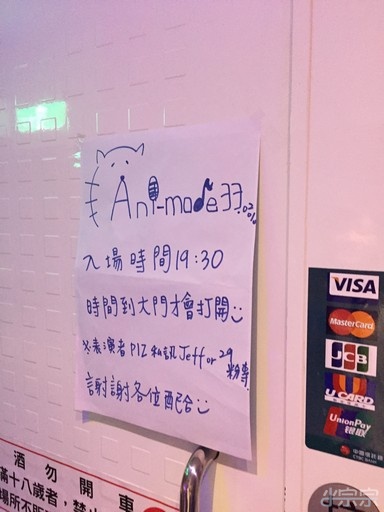 Ani-mode33
入場時間19:30
時間到大門才會打開
※表演者PLZ私訊Jeff or 29
粉專
謝謝各位配合
VISA
MasterCard
JCB
U CARD
UnionPay
銀联
中國信託銀行
CTBC BANK
酒勿開車
滿十八歲者,禁
場所不販